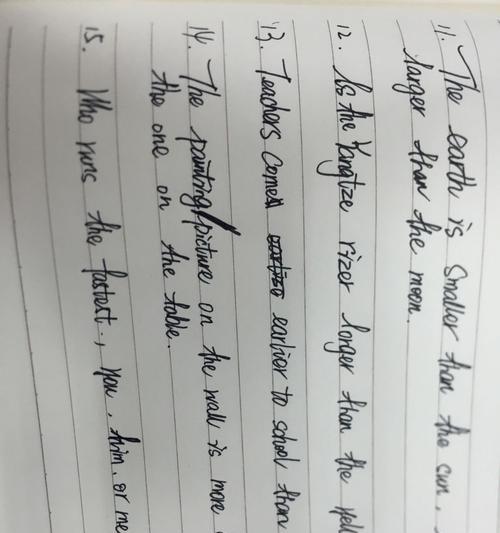 11. The earth is smaller than the cun,
larger than the moon.
12. Is the Yangtze rizer longer than the yell
13. Teachers comes earlier to school than
14. The painting/picture on the wall is more
the one on the table.
15. Who runs the fastest., you, him, or me